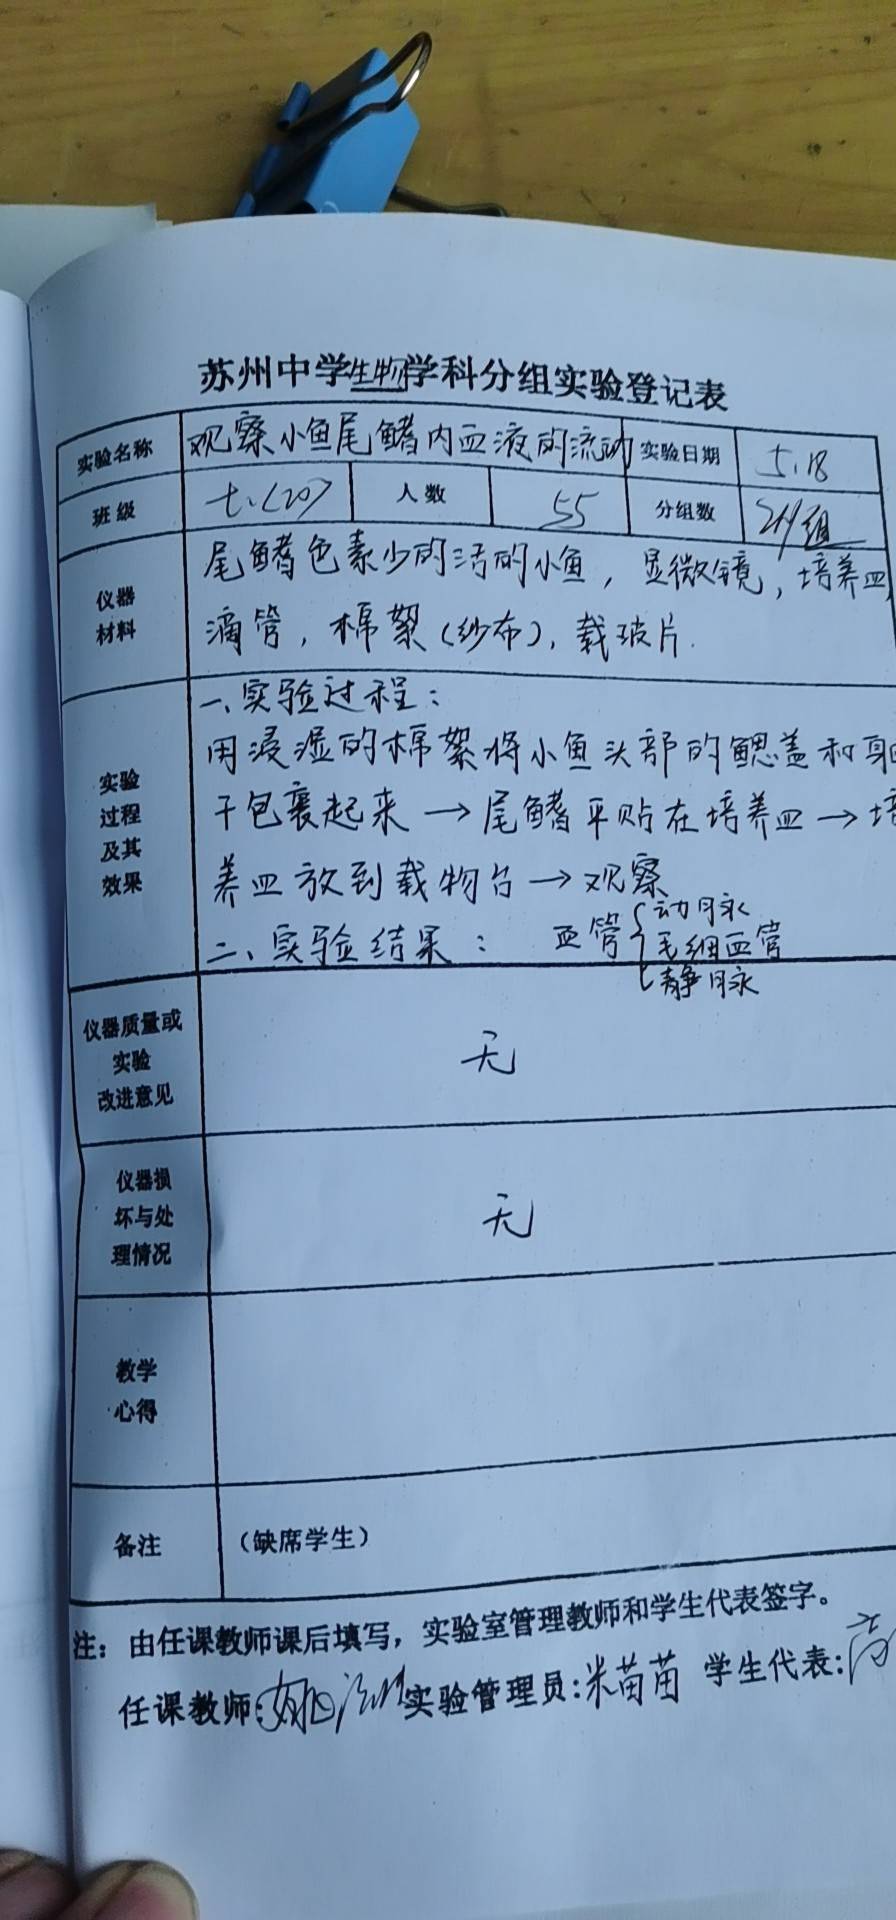 苏州中学生物学科分组实验登记表
实验名称 观察小鱼尾鳍内血液的流动 实验日期 5.18
班级 七.(20) 人数 55 分组数 组
仪器材料 尾鳍色素少的活的小鱼，显微镜，培养皿
滴管，棉絮(纱布)，载玻片.
实验过程及其效果 一、实验过程：
用浸湿的棉絮将小鱼头部的鳃盖和躯
干包裹起来→尾鳍平贴在培养皿→培
养皿放到载物台→观察
二、实验结果： 血管{动脉
毛细血管
静脉
仪器质量或实验改进意见 无
仪器损坏与处理情况 无
教学心得
备注 （缺席学生）
注：由任课教师课后填写，实验室管理教师和学生代表签字。
任课教师: 实验管理员:米苗苗 学生代表: